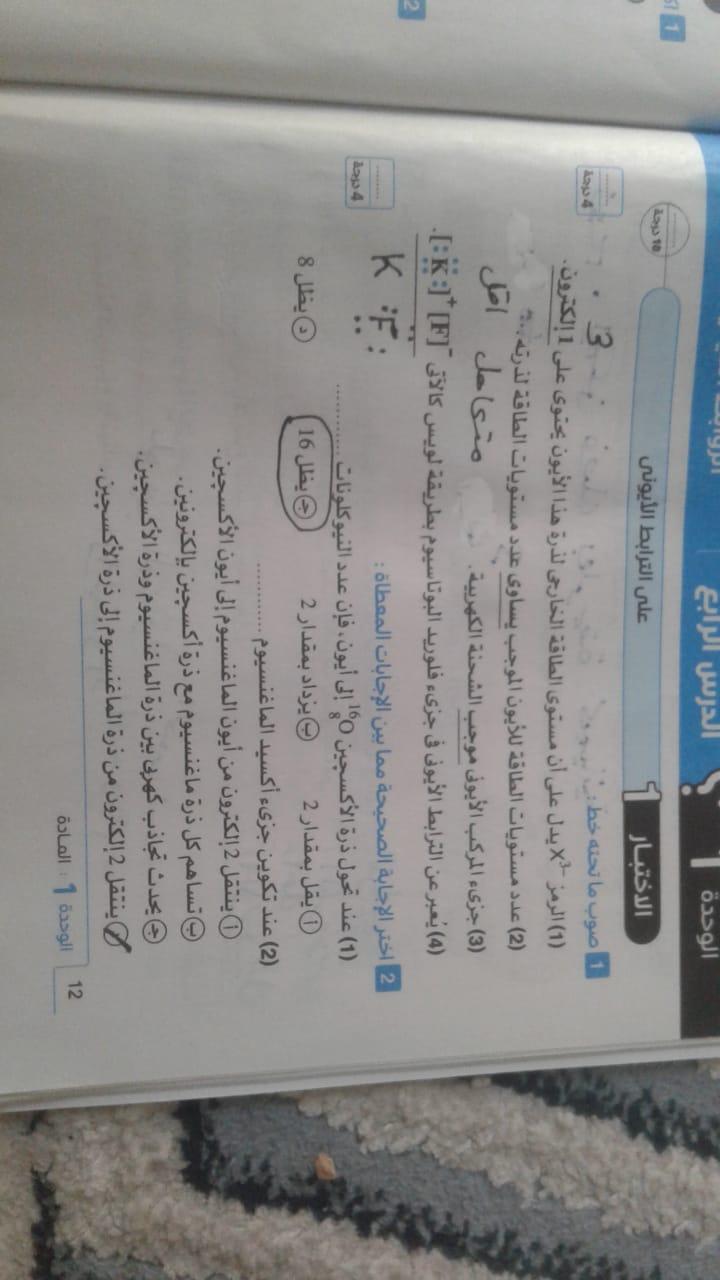 الوحدة 1
الدرس الرابع
الاختبار 1 على الترابط الأيونى
10 درجة
1 صوب ما تحته خط :
4 درجة
(1) الرمز X³⁻ يدل على أن مستوى الطاقة الخارجى لذرة هذا الأيون يحتوى على 1 إلكترون.
3
(2) عدد مستويات الطاقة للأيون الموجب يساوى عدد مستويات الطاقة لذرته.
اقل
(3) جزىء المركب الأيونى موجب الشحنة الكهربية.
متعادل
(4) يُعبر عن الترابط الأيونى فى جزىء فلوريد البوتاسيوم بطريقة لويس كالآتى [:K:]⁺ [F]⁻.
K :F:
2 اختر الإجابة الصحيحة مما بين الإجابات المعطاة :
4 درجة
(1) عند تحول ذرة الأكسچين ¹⁶₈O إلى أيون، فإن عدد النيوكلونات ............
أ يقل بمقدار 2 ب يزداد بمقدار 2 جـ يظل 16 د يظل 8
(2) عند تكوين جزىء أكسيد الماغنسيوم ............
أ ينتقل 2 إلكترون من أيون الماغنسيوم إلى أيون الأكسچين.
ب تساهم كل ذرة ماغنسيوم مع ذرة أكسچين بإلكترونين.
جـ يحدث تجاذب كهربى بين ذرة الماغنسيوم وذرة الأكسچين.
د ينتقل 2 إلكترون من ذرة الماغنسيوم إلى ذرة الأكسچين.
12 الوحدة 1 : المادة
1
2